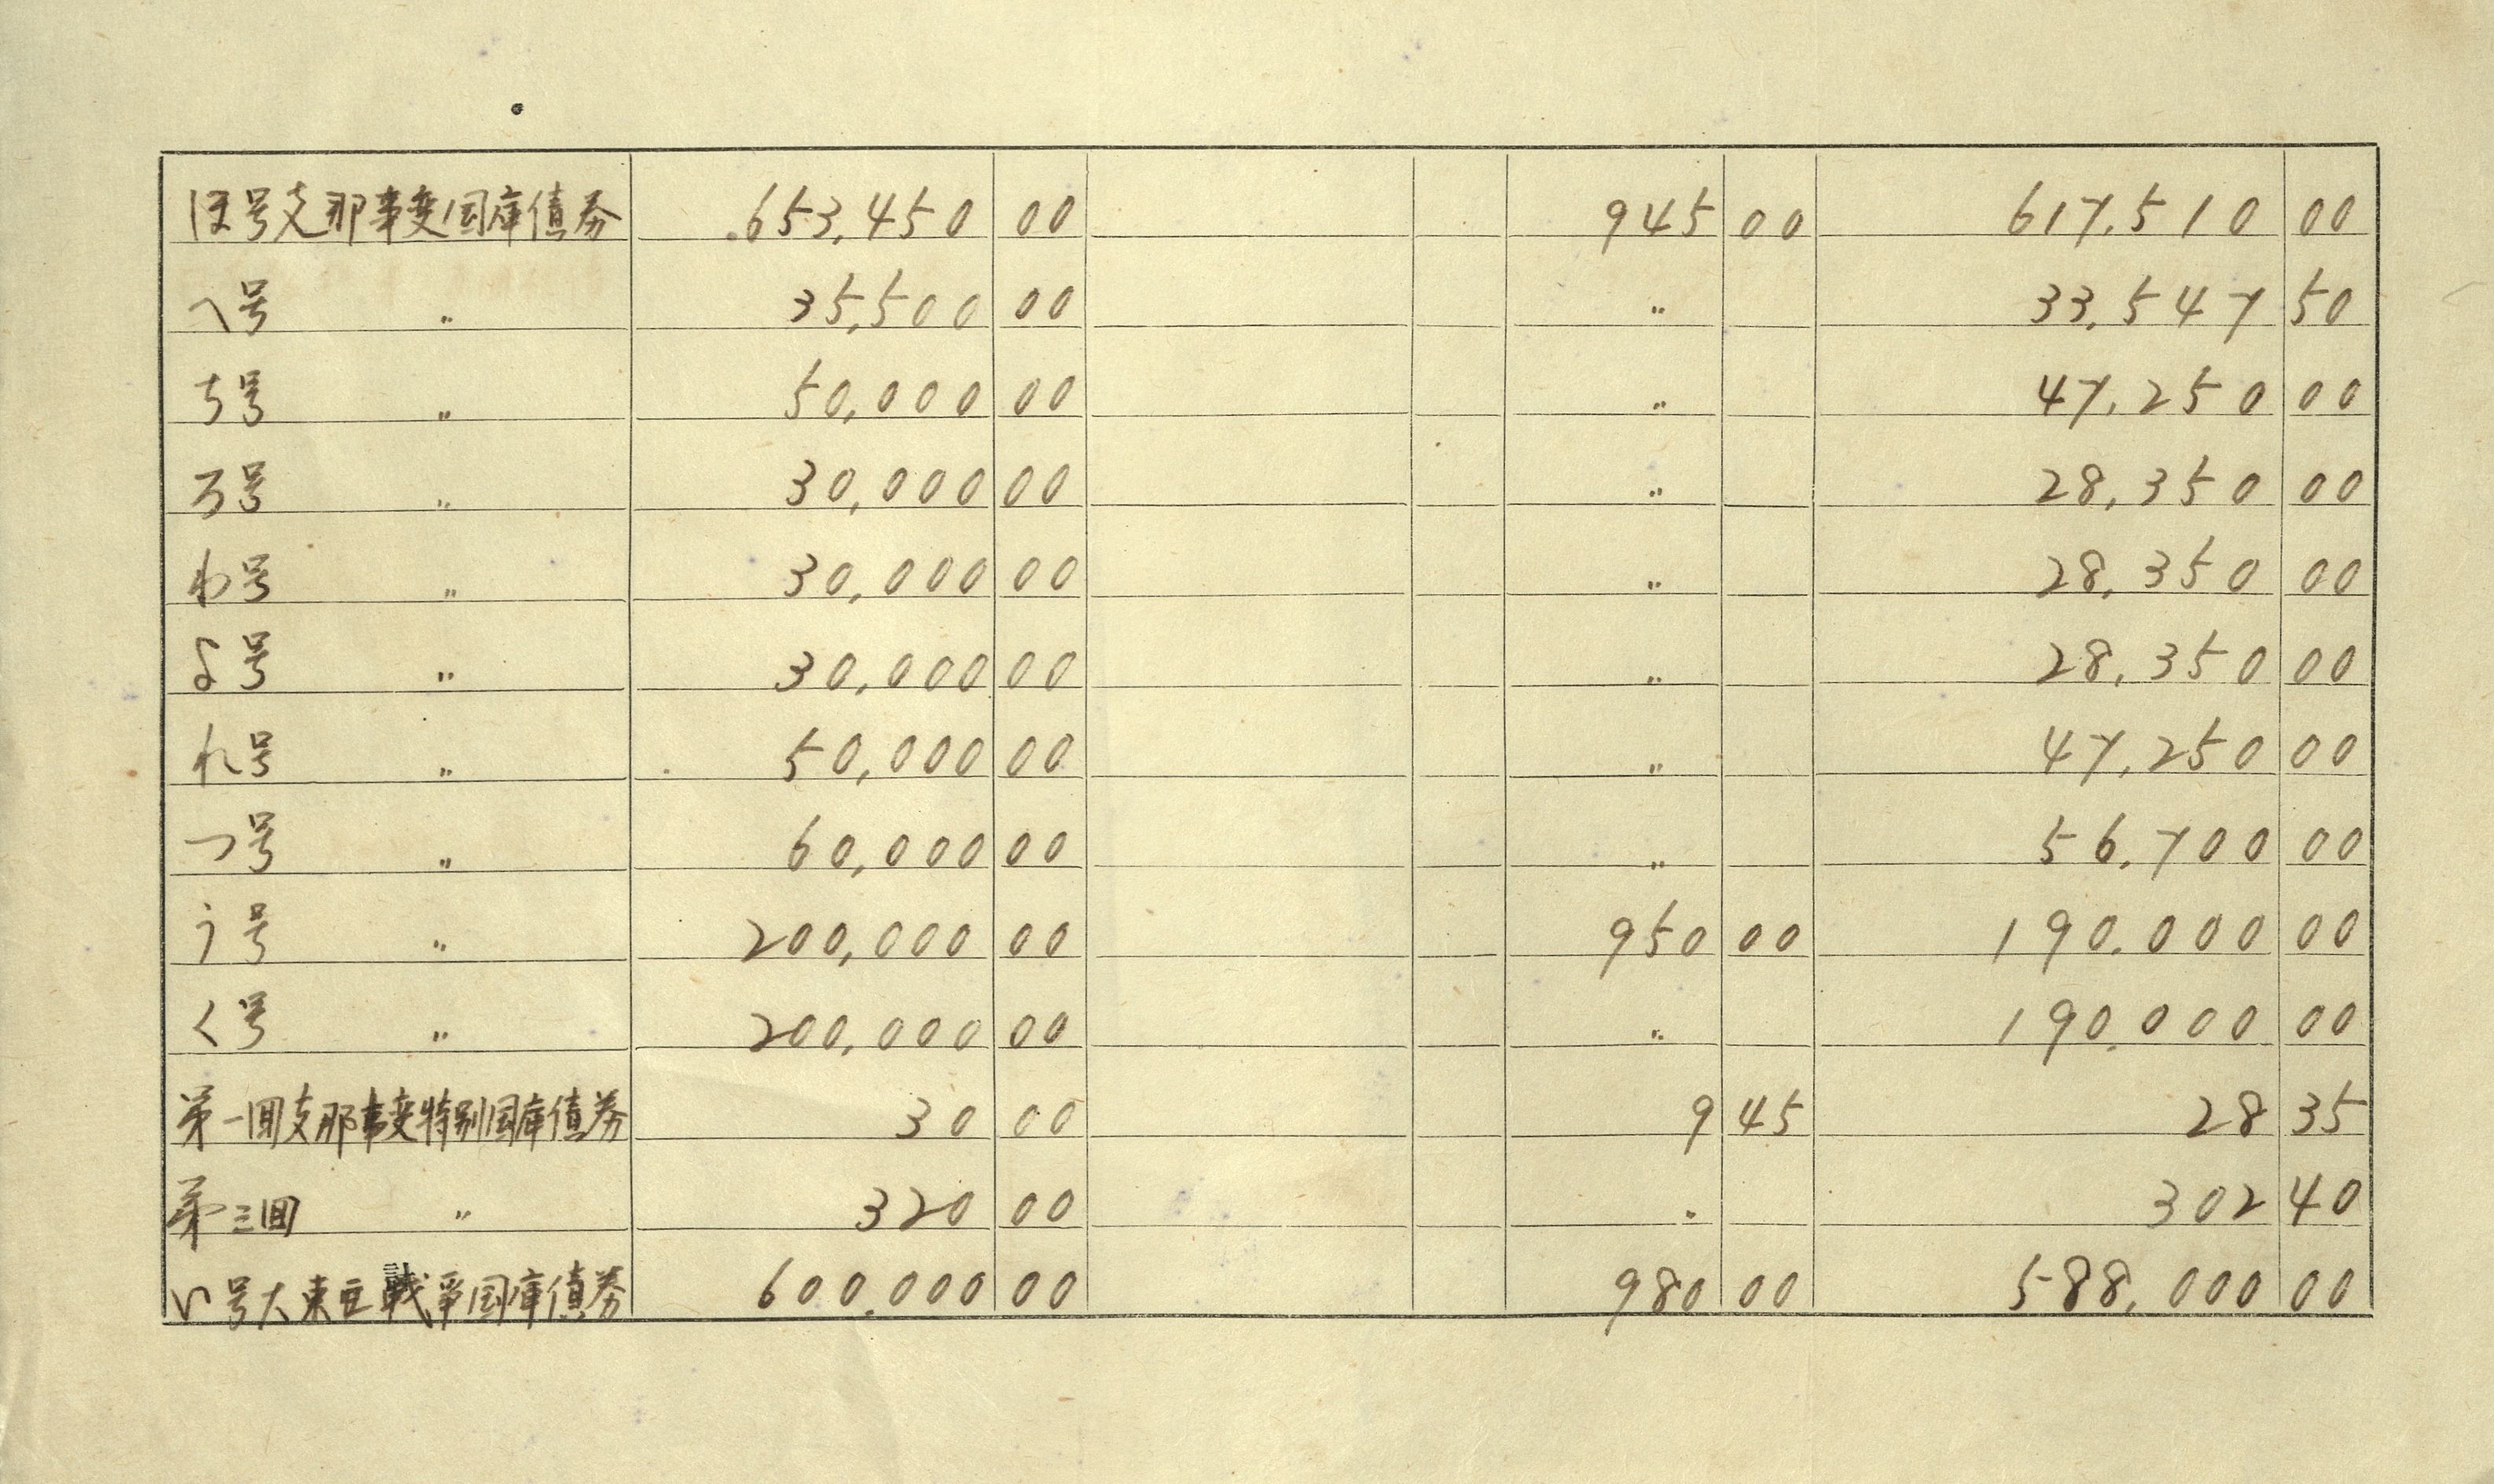 ほ号支那事変国庫債券 653,450 00 945 00 617,510 00
へ号 〃 35,500 00 〃 33,547 50
ち号 〃 50,000 00 〃 47,250 00
る号 〃 30,000 00 〃 28,350 00
わ号 〃 30,000 00 〃 28,350 00
よ号 〃 30,000 00 〃 28,350 00
れ号 〃 50,000 00 〃 47,250 00
つ号 〃 60,000 00 〃 56,700 00
う号 〃 200,000 00 950 00 190,000 00
く号 〃 200,000 00 〃 190,000 00
第一回支那事変特別国庫債券 30 00 9 45 28 35
第三回 〃 320 00 〃 302 40
い号大東亜戦争国庫債券 600,000 00 980 00 588,000 00